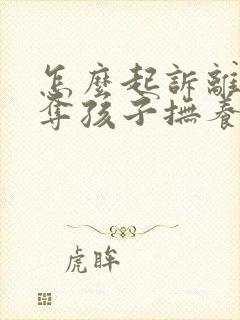 怎麼起訴離
奪孩子撫養
虎眸